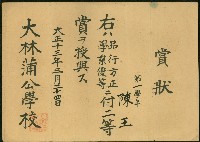 賞狀
第一學年
陳王
右ハ品行方正
學業優等ニ付二等
賞ヲ授與ス
大正十三年三月二十四日
大林蒲公學校